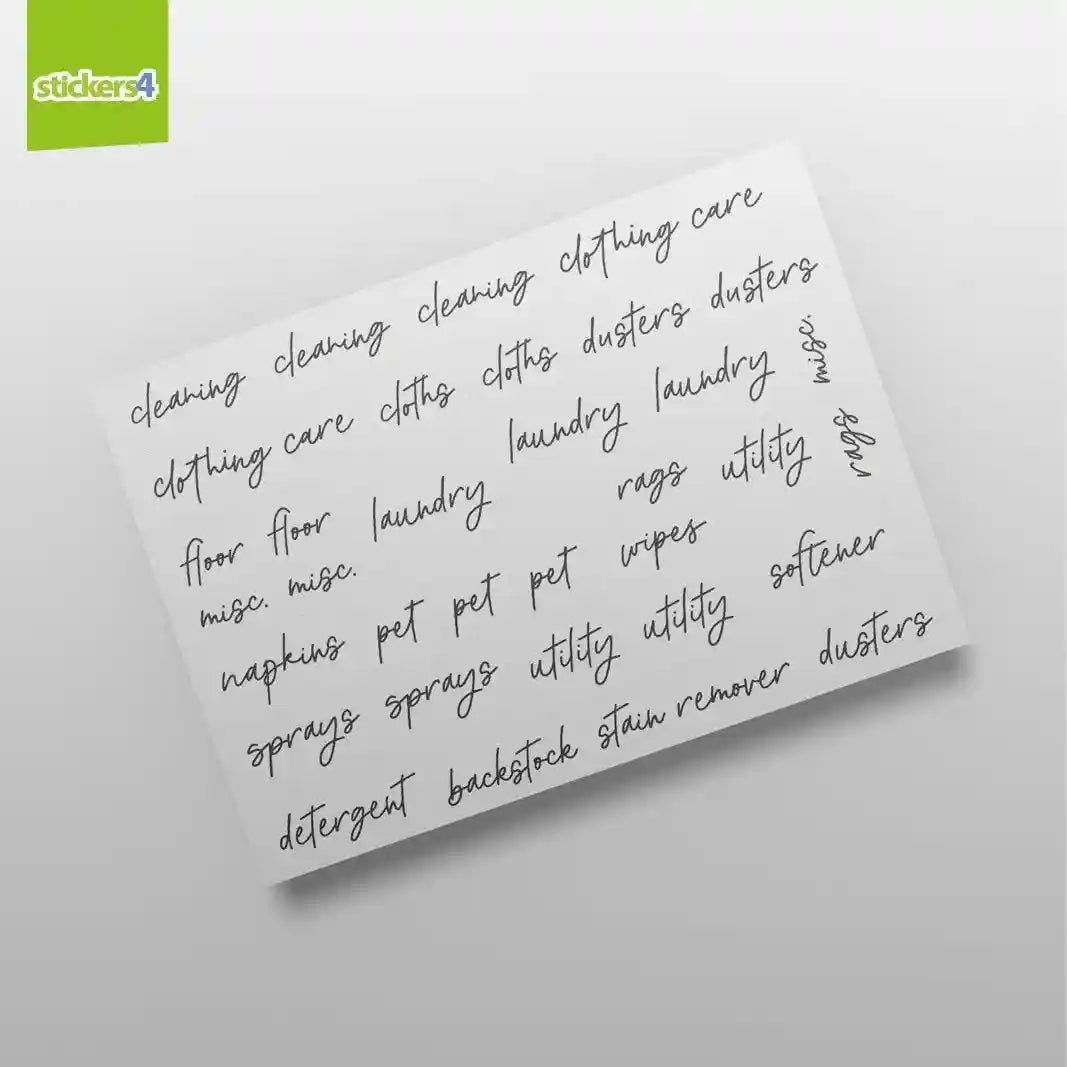 stickers4
cleaning cleaning cleaning clothing care
clothing care cloths cloths dusters dusters
floor floor laundry laundry laundry misc.
misc. misc. rags utility rags
napkins pet pet pet wipes
sprays sprays utility utility softener
detergent backstock stain remover dusters